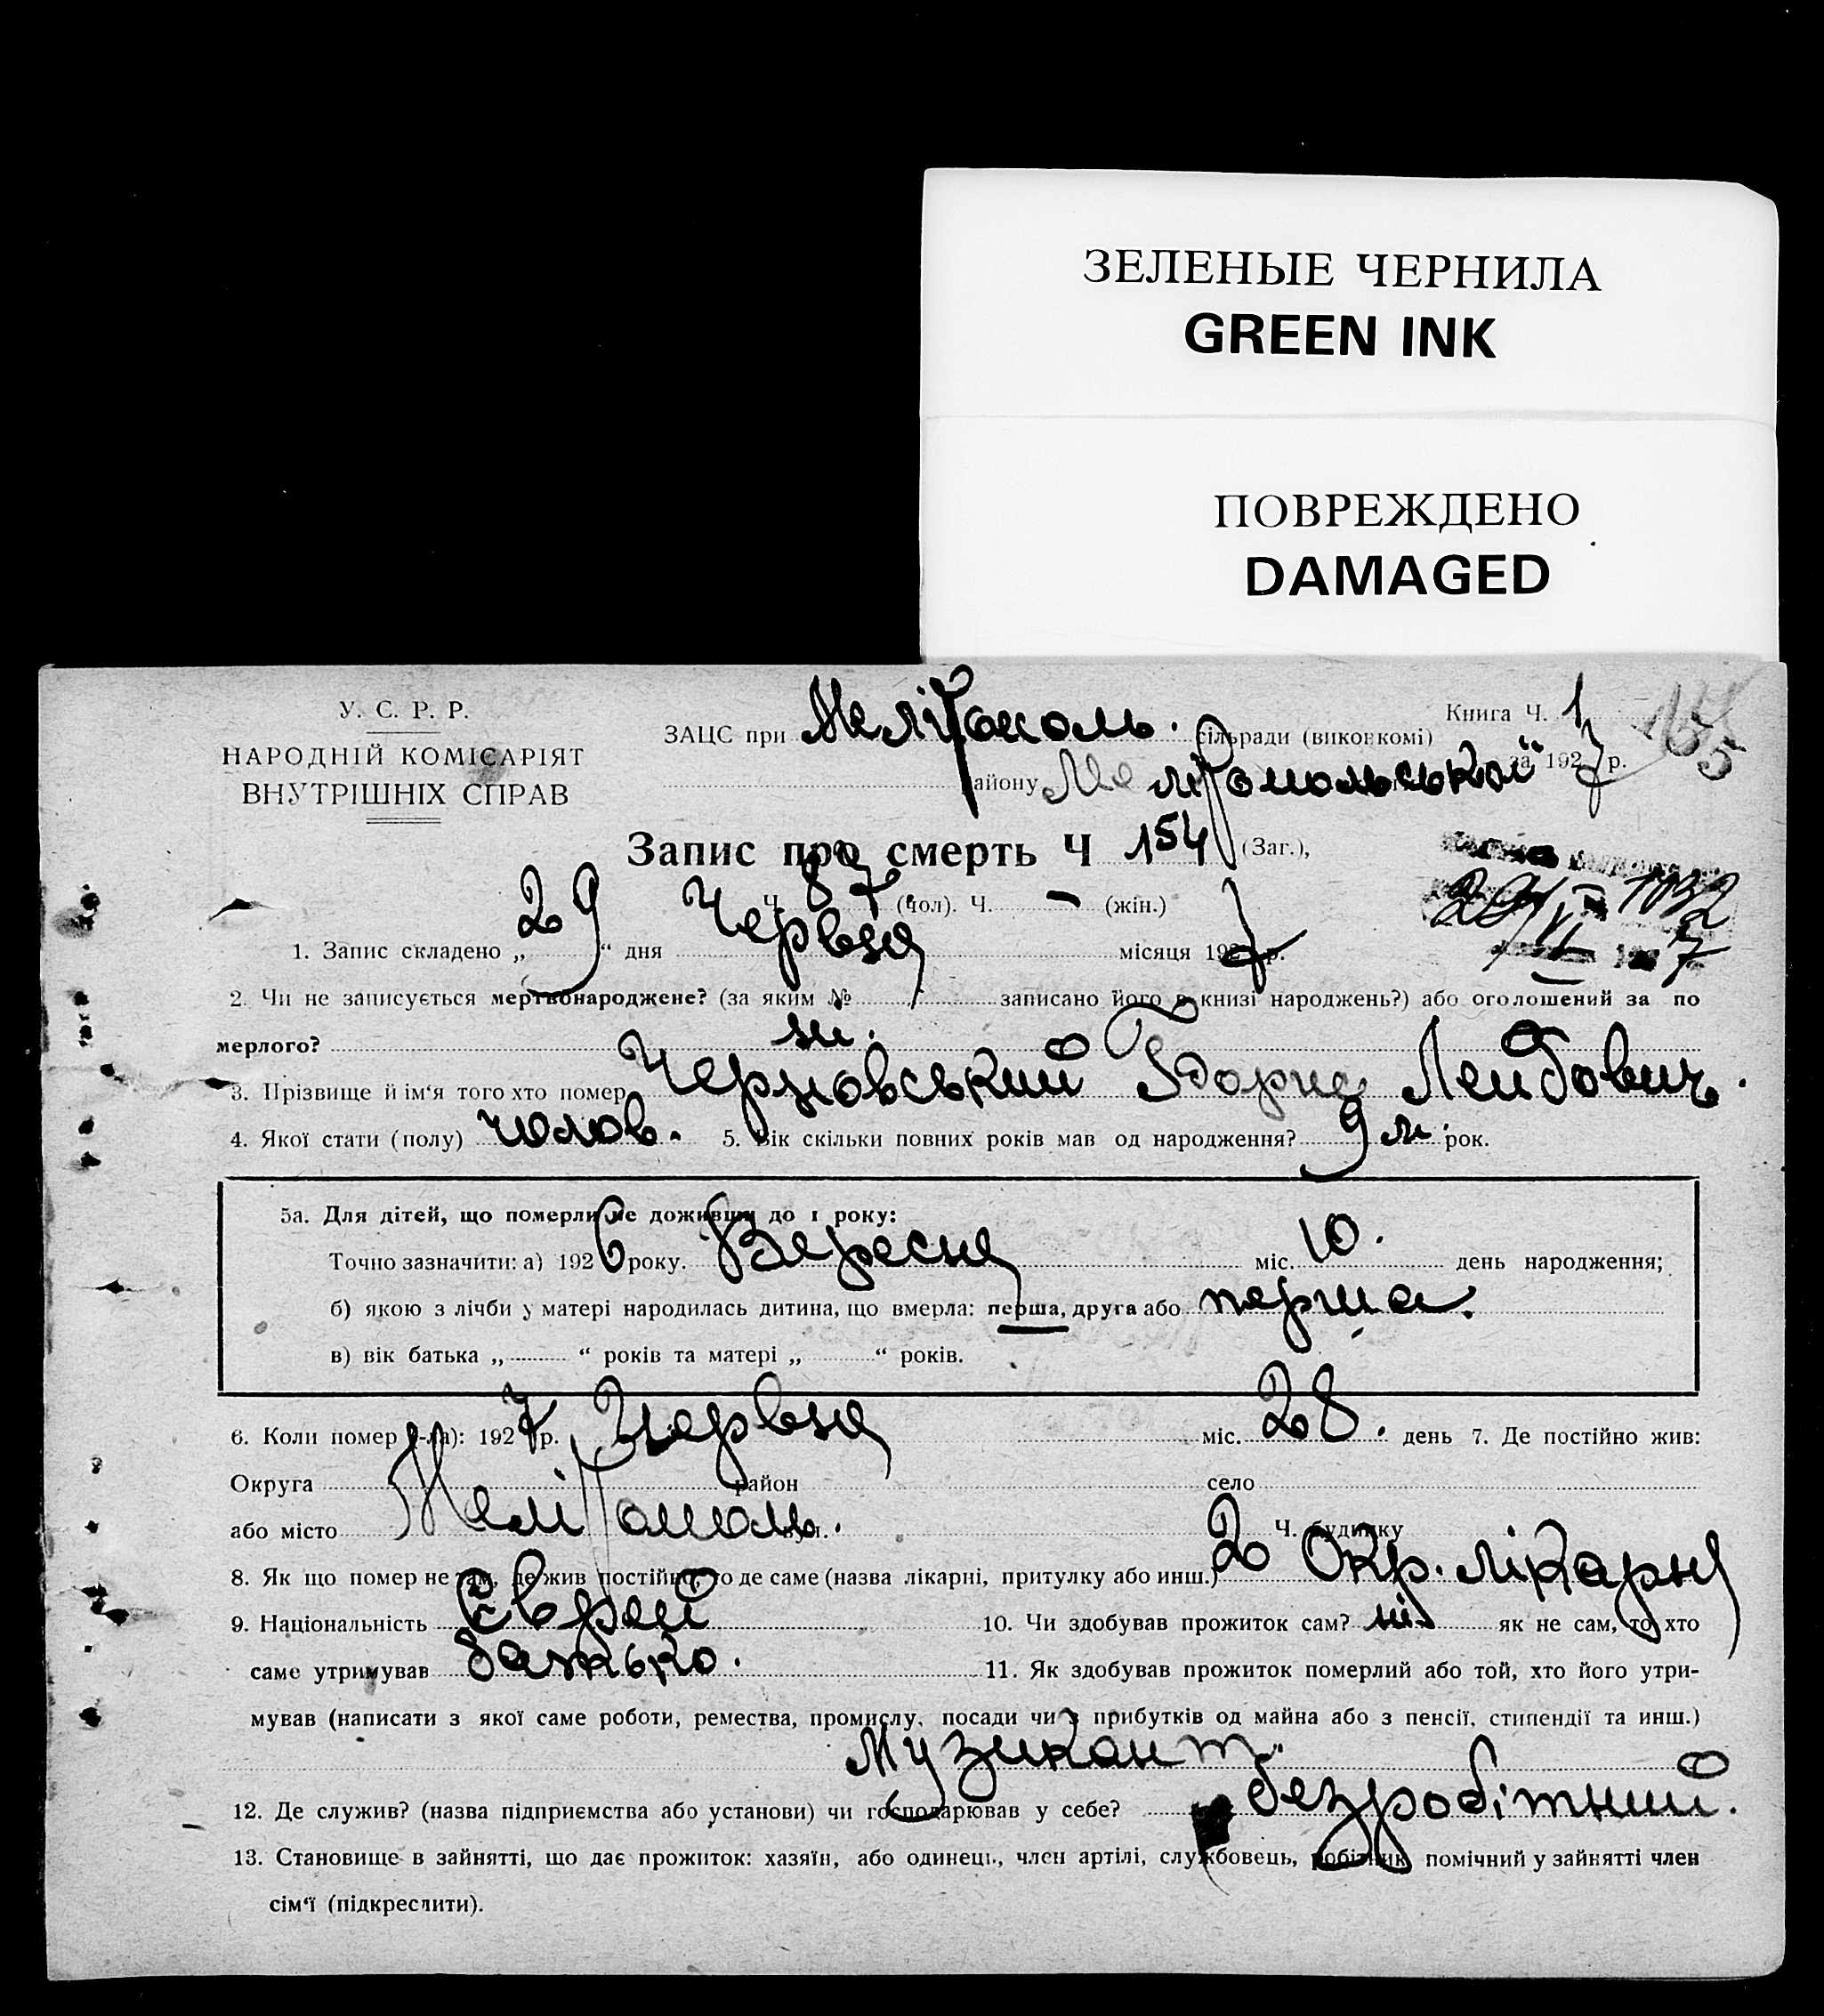 ЗЕЛЕНЫЕ ЧЕРНИЛА
GREEN INK
ПОВРЕЖДЕНО
DAMAGED
У. С. Р. Р.
НАРОДНІЙ КОМІСАРІЯТ
ВНУТРІШНІХ СПРАВ
ЗАЦС при Мелітополь. сільради (виконкомі)
району Мелітопольський
Книга Ч. 1
за 1927 р.
165
Запис про смерть Ч 154 (Заг.),
Ч. 87 (чол). Ч. — (жін.)
1. Запис складено „29“ дня Червня місяця 1927 р.
2. Чи не записується мертвонароджене? (за яким № записано його в книзі народжень?) або оголошений за по
мерлого? ні.
3. Прізвище й ім'я того хто помер Черновський Борис Лейбович.
4. Якої стати (полу) чолов. 5. Вік скільки повних років мав од народження? 9 м. рок.
5а. Для дітей, що померли не доживши до 1 року:
Точно зазначити: а) 1926 року. Вересня міс. 10. день народження;
б) якою з лічби у матері народилась дитина, що вмерла: перша, друга або перша.
в) вік батька „ “ років та матері „ “ років.
6. Коли помер (-ла): 1927 р. Червня міс. 28. день 7. Де постійно жив:
Округа район село
або місто Мелітополь. вул. Ч. будинку
8. Як що помер не там, де жив постійно, то де саме (назва лікарні, притулку або инш.) 2 Окр. лікарня
9. Національність Єврей 10. Чи здобував прожиток сам? ні як не сам, то хто
саме утримував батько. 11. Як здобував прожиток померлий або той, хто його утри-
мував (написати з якої саме роботи, ремества, промислу, посади чи з прибутків од майна або з пенсії, стипендії та инш.)
Музикант.
12. Де служив? (назва підприємства або установи) чи господарював у себе? безробітний.
13. Становище в зайнятті, що дає прожиток: хазяїн, або одинець, член артілі, службовець, робітник помічний у зайнятті член
сім'ї (підкреслити).